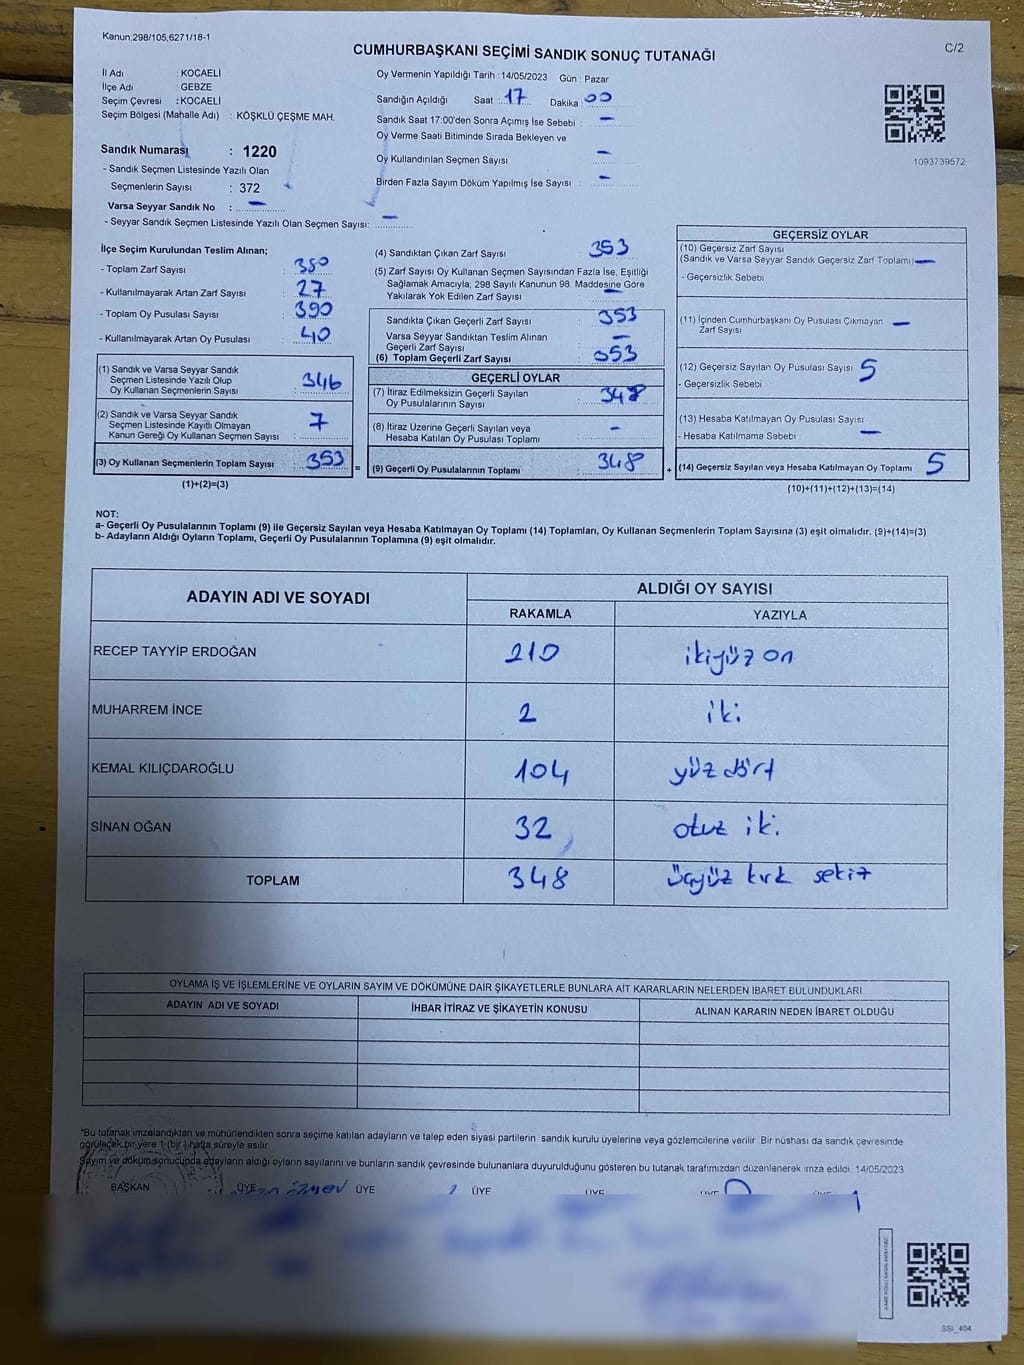 Kanun;298/105;6271/18-1
C/2
CUMHURBAŞKANI SEÇİMİ SANDIK SONUÇ TUTANAĞI
İl Adı : KOCAELİ
İlçe Adı : GEBZE
Seçim Çevresi : KOCAELİ
Seçim Bölgesi (Mahalle Adı) : KÖŞKLÜ ÇEŞME MAH.
Sandık Numarası : 1220
- Sandık Seçmen Listesinde Yazılı Olan
Seçmenlerin Sayısı : 372
Varsa Seyyar Sandık No : -
- Seyyar Sandık Seçmen Listesinde Yazılı Olan Seçmen Sayısı: -
Oy Vermenin Yapıldığı Tarih : 14/05/2023 Gün : Pazar
Sandığın Açıldığı Saat : 17 Dakika : 00
Sandık Saat 17:00'den Sonra Açımış İse Sebebi : -
Oy Verme Saati Bitiminde Sırada Bekleyen ve
Oy Kullandırılan Seçmen Sayısı : -
Birden Fazla Sayım Döküm Yapılmış İse Sayısı : -
1093739572
İlçe Seçim Kurulundan Teslim Alınan;
- Toplam Zarf Sayısı : 380
- Kullanılmayarak Artan Zarf Sayısı : 27
- Toplam Oy Pusulası Sayısı : 390
- Kullanılmayarak Artan Oy Pusulası : 40
(1) Sandık ve Varsa Seyyar Sandık
Seçmen Listesinde Yazılı Olup
Oy Kullanan Seçmenlerin Sayısı : 346
(2) Sandık ve Varsa Seyyar Sandık
Seçmen Listesinde Kayıtlı Olmayan
Kanun Gereği Oy Kullanan Seçmen Sayısı : 7
(3) Oy Kullanan Seçmenlerin Toplam Sayısı : 353
(1)+(2)=(3)
=
(4) Sandıktan Çıkan Zarf Sayısı : 353
(5) Zarf Sayısı Oy Kullanan Seçmen Sayısından Fazla İse, Eşitliği
Sağlamak Amacıyla; 298 Sayılı Kanunun 98. Maddesine Göre
Yakılarak Yok Edilen Zarf Sayısı : -
Sandıkta Çıkan Geçerli Zarf Sayısı : 353
Varsa Seyyar Sandıktan Teslim Alınan
Geçerli Zarf Sayısı : -
(6) Toplam Geçerli Zarf Sayısı : 353
GEÇERLİ OYLAR
(7) İtiraz Edilmeksizin Geçerli Sayılan
Oy Pusulalarının Sayısı : 348
(8) İtiraz Üzerine Geçerli Sayılan veya
Hesaba Katılan Oy Pusulası Toplamı : -
(9) Geçerli Oy Pusulalarının Toplamı : 348
+
GEÇERSİZ OYLAR
(10) Geçersiz Zarf Sayısı
(Sandık ve Varsa Seyyar Sandık Geçersiz Zarf Toplamı) -
- Geçersizlik Sebebi :
(11) İçinden Cumhurbaşkanı Oy Pusulası Çıkmayan -
Zarf Sayısı
(12) Geçersiz Sayılan Oy Pusulası Sayısı : 5
- Geçersizlik Sebebi :
(13) Hesaba Katılmayan Oy Pusulası Sayısı :
- Hesaba Katılmama Sebebi : -
(14) Geçersiz Sayılan veya Hesaba Katılmayan Oy Toplamı : 5
(10)+(11)+(12)+(13)=(14)
NOT:
a- Geçerli Oy Pusulalarının Toplamı (9) ile Geçersiz Sayılan veya Hesaba Katılmayan Oy Toplamı (14) Toplamları, Oy Kullanan Seçmenlerin Toplam Sayısına (3) eşit olmalıdır. (9)+(14)=(3)
b- Adayların Aldığı Oyların Toplamı, Geçerli Oy Pusulalarının Toplamına (9) eşit olmalıdır.
ADAYIN ADI VE SOYADI
ALDIĞI OY SAYISI
RAKAMLA YAZIYLA
RECEP TAYYİP ERDOĞAN 210 ikiyüz on
MUHARREM İNCE 2 iki
KEMAL KILIÇDAROĞLU 104 yüz dört
SİNAN OĞAN 32 otuz iki
TOPLAM 348 üçyüz kırk sekiz
OYLAMA İŞ VE İŞLEMLERİNE VE OYLARIN SAYIM VE DÖKÜMÜNE DAİR ŞİKAYETLERLE BUNLARA AİT KARARLARIN NELERDEN İBARET BULUNDUKLARI
ADAYIN ADI VE SOYADI İHBAR İTİRAZ VE ŞİKAYETİN KONUSU ALINAN KARARIN NEDEN İBARET OLDUĞU
*Bu tutanak imzalandıktan ve mühürlendikten sonra seçime katılan adayların ve talep eden siyasi partilerin sandık kurulu üyelerine veya gözlemcilerine verilir. Bir nüshası da sandık çevresinde
görülecek bir yere 1 (bir) hafta süreyle asılır.
Sayım ve döküm sonucunda adayların aldığı oyların sayılarını ve bunların sandık çevresinde bulunanlara duyurulduğunu gösteren bu tutanak tarafımızdan düzenlenerek imza edildi. 14/05/2023
BAŞKAN ÜYE ÜYE ÜYE ÜYE ÜYE ÜYE
SSI_404